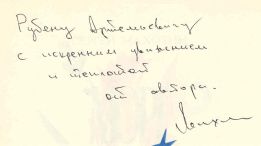 Рубену Артемьевичу
с искренним уважением
и теплотой
от автора.